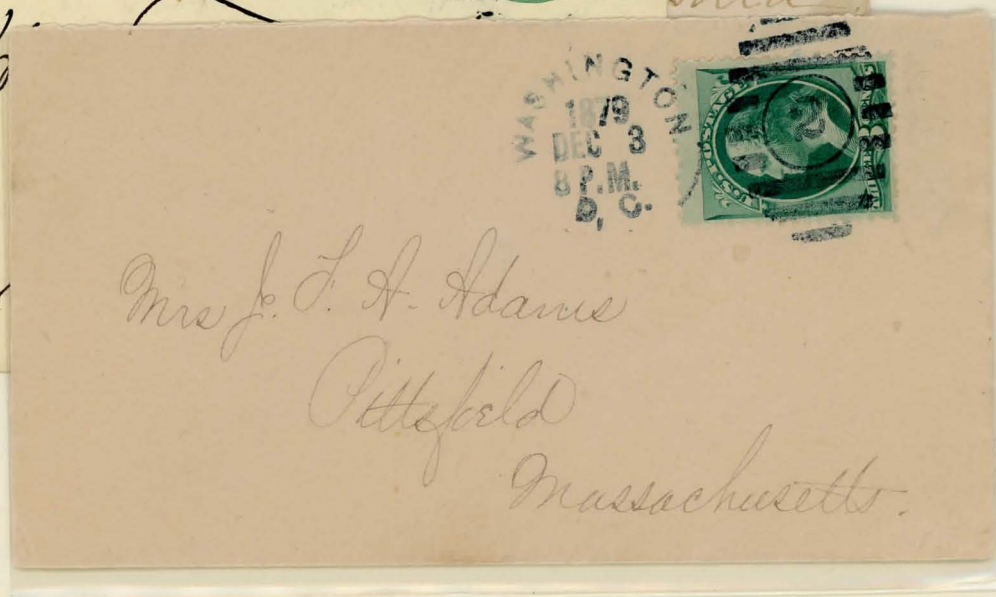 WASHINGTON
1879
DEC 3
8 P.M.
D. C.
U.S. POSTAGE
2
3
Mrs J. F. A. Adams
Pittsfield
Massachusetts.